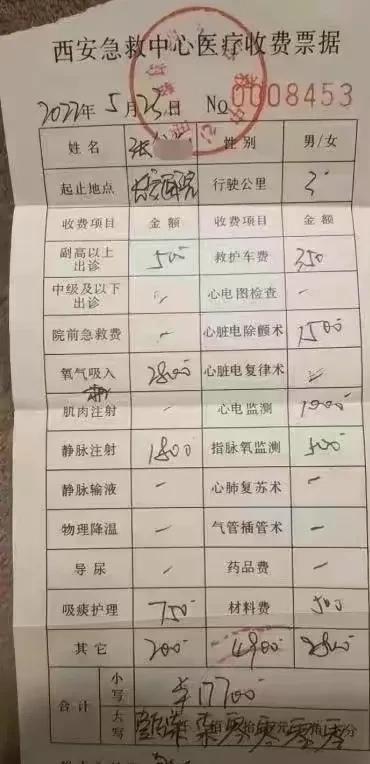 西安急救中心医疗收费票据
2022年5月23日 № 0008453
姓名 张 性别 男/女
起止地点 医院 行驶公里 3
收费项目 金额 收费项目 金额
副高以上出诊 500 救护车费 350
中级及以下出诊 - 心电图检查 -
院前急救费 - 心脏电除颤术 1500
氧气吸入 2800 心脏电复律术 -
肌肉注射 - 心电监测 1000
静脉注射 1800 指脉氧监测 500
静脉输液 - 心肺复苏术 -
物理降温 - 气管插管术 -
导尿 - 药品费 -
吸痰护理 750 材料费 500
其它 200 4900
合计 小写 ¥17700
大写 柒 零 拾 零 元 零 零 分